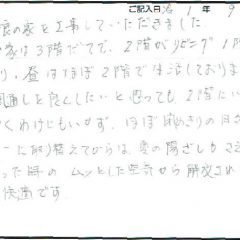 ご記入日 1年 9
良の家を工事していただきました
家は3階だてで、2階がリビング1階
り、昼はほぼ2階で生活しておりま
風通しを良くしたいと思っても、2階にい
くわけにもいかず、ほぼ閉めきりの日々
ーに取り替えてからは、夏の陽ざしもさえ
った時のムッとした空気から解放され
快適です。